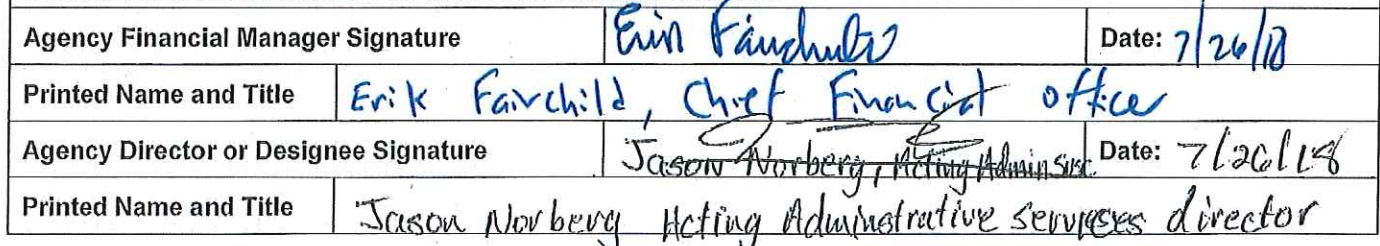 Agency Financial Manager Signature Date: 7/26/18
Printed Name and Title Erik Fairchild, Chief Financial officer
Agency Director or Designee Signature Jason Norberg, Acting Admin Date: 7/26/18
Printed Name and Title Jason Norberg Acting Administrative director